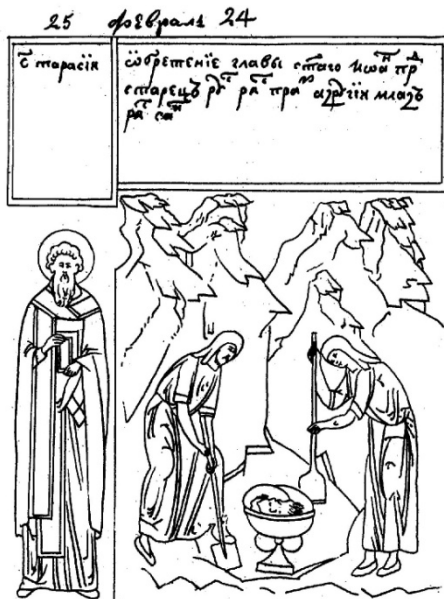 25 февраль 24
с҃ тарасїи
ѡбретенїе главы ст҃аго иѡа пр
старецъ рѹ ра пра а дрꙋгїи младъ
ра са